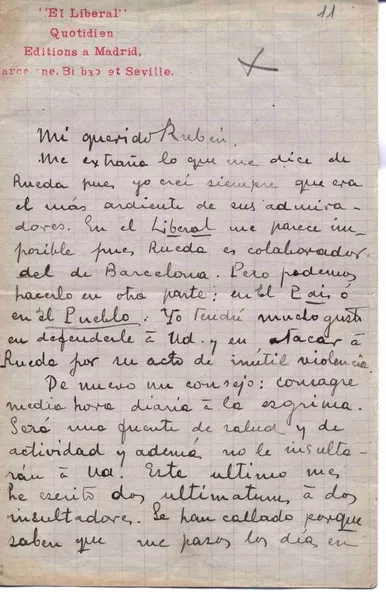 "El Liberal"
11
Quotidien
Editions a Madrid,
arce ne, Bilbao et Seville.
Mi querido Rubén,
Me extraña lo que me dice de
Rueda pues yo creí siempre que era
el más ardiente de sus admira-
dores. En el Liberal me parece im-
posible pues Rueda es colaborador
del de Barcelona. Pero podemos
hacerlo en otra parte: en El Pais ó
en el Pueblo. Yo tendré mucho gusto
en defenderle à Ud. y en atacar à
Rueda por su acto de inútil violencia.
De nuevo un consejo: consagre
media hora diaria à la esgrima.
Será una fuente de salud y de
actividad y además no le insulta-
rán à Ud. Este ultimo mes
he escrito dos ultimatums à dos
insultadores. Se han callado porque
saben que me paso los días en